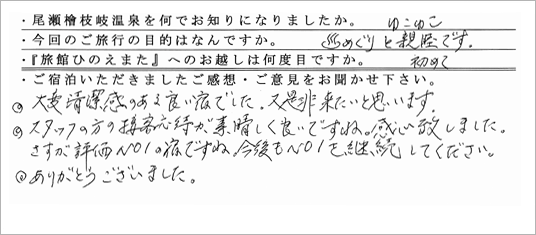 ・尾瀬檜枝岐温泉を何でお知りになりましたか。 ゆこゆこ
・今回のご旅行の目的はなんですか。 山めぐりと親睦です。
・『旅館ひのえまた』へのお越しは何度目ですか。 初めて
・ご宿泊いただきましたご感想・ご意見をお聞かせ下さい。
◎大変清潔感のある良い宿でした。又是非来たいと思います。
◎スタッフの方の接客応待が素晴しく良いですね。感心致しました。
さすが評価NO1の宿ですね。今後もNO1を継続してください。
◎ありがとうございました。